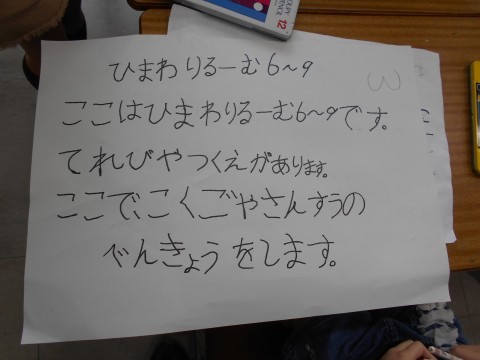 ひまわりるーむ6〜9
ここはひまわりるーむ6〜9です。
てれびやつくえがあります。
ここで、こくごやさんすうの
べんきょうをします。
3
12